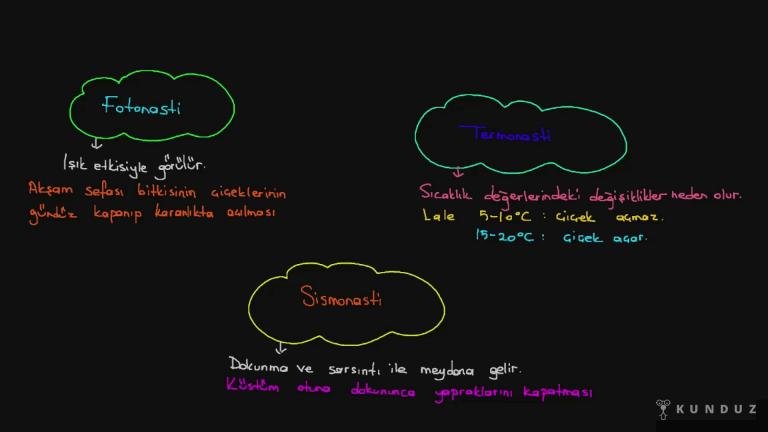 Fotonasti
Işık etkisiyle görülür.
Akşam sefası bitkisinin çiçeklerinin
gündüz kapanıp karanlıkta açılması
Termonasti
Sıcaklık değerlerindeki değişiklikler neden olur.
Lale 5-10°C : çiçek açmaz.
15-20°C : çiçek açar.
Sismonasti
Dokunma ve sarsıntı ile meydana gelir.
Küstüm otuna dokununca yapraklarını kapatması
KUNDUZ